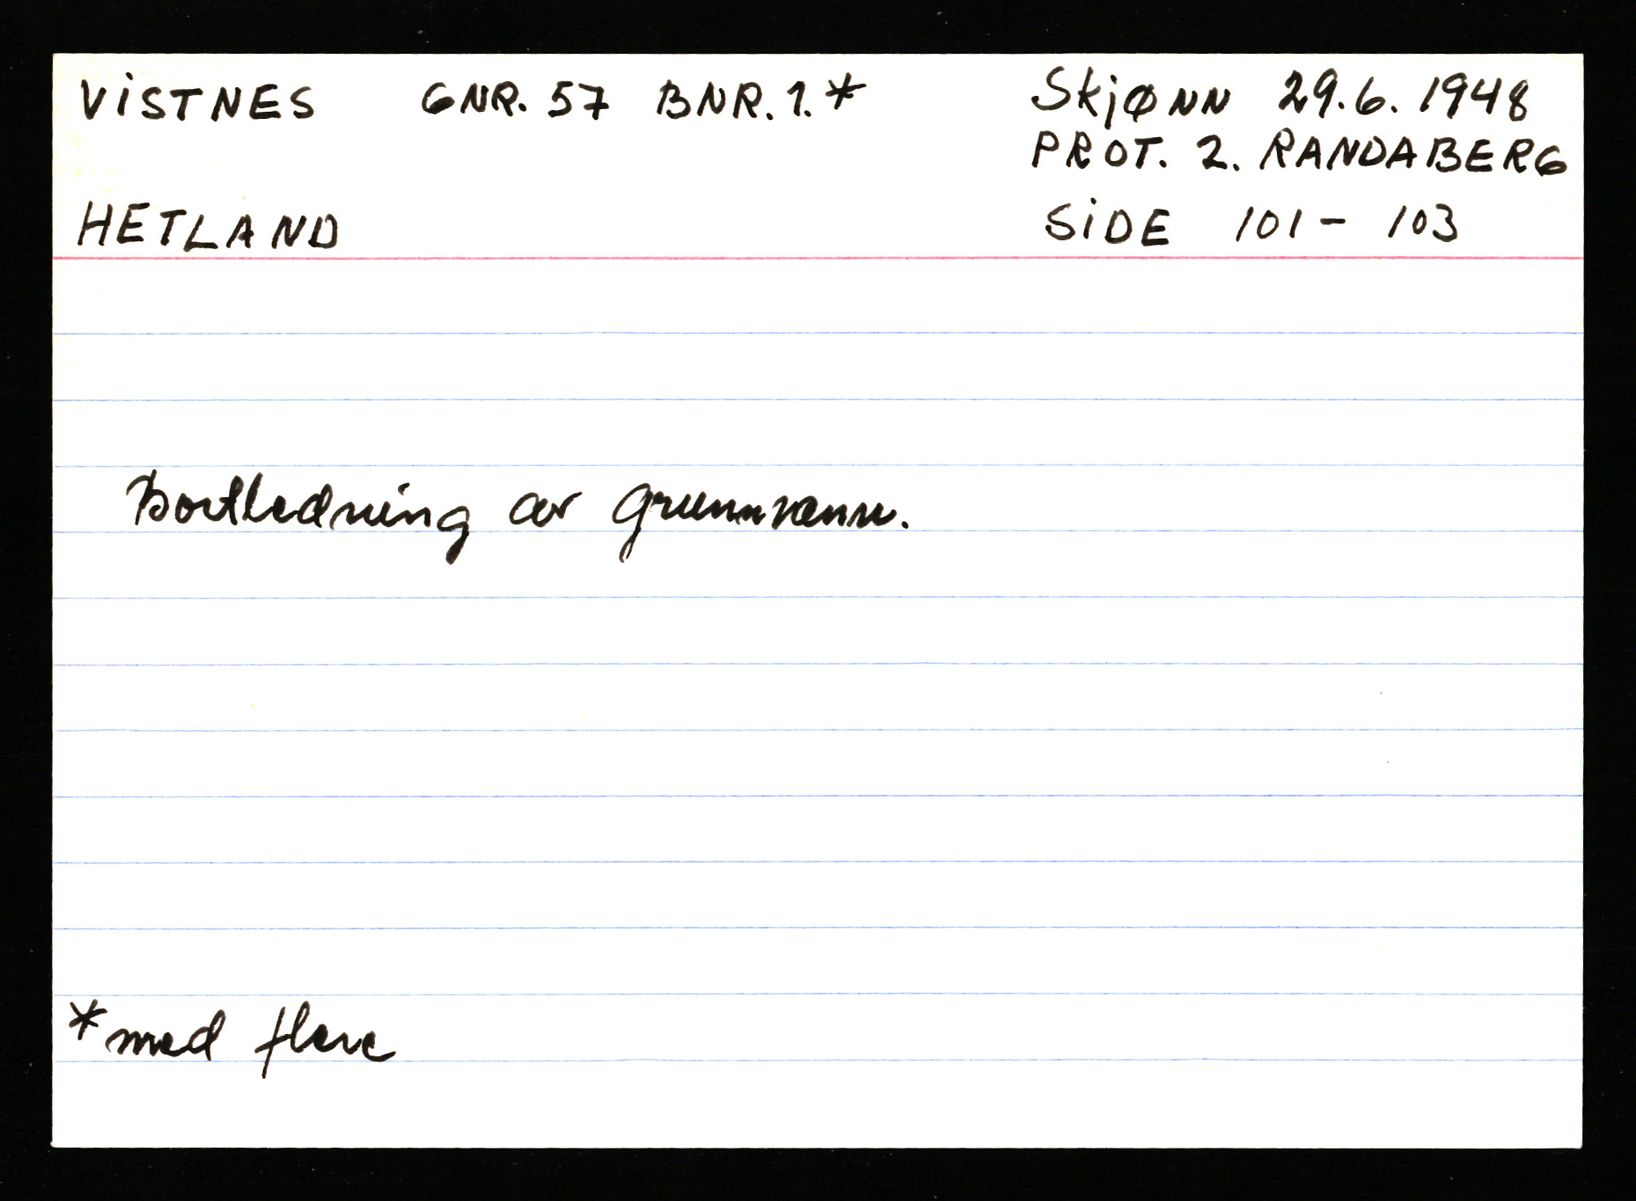 VISTNES GNR. 57 BNR. 1.* Skjønn 29.6.1948
PROT. 2. RANDABERG
HETLAND SIDE 101 - 103
Bortledning av grunnvann.
* med flere